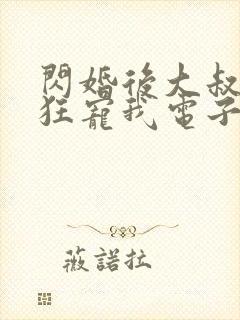 閃婚後大叔
狂寵我電子
薇諾拉